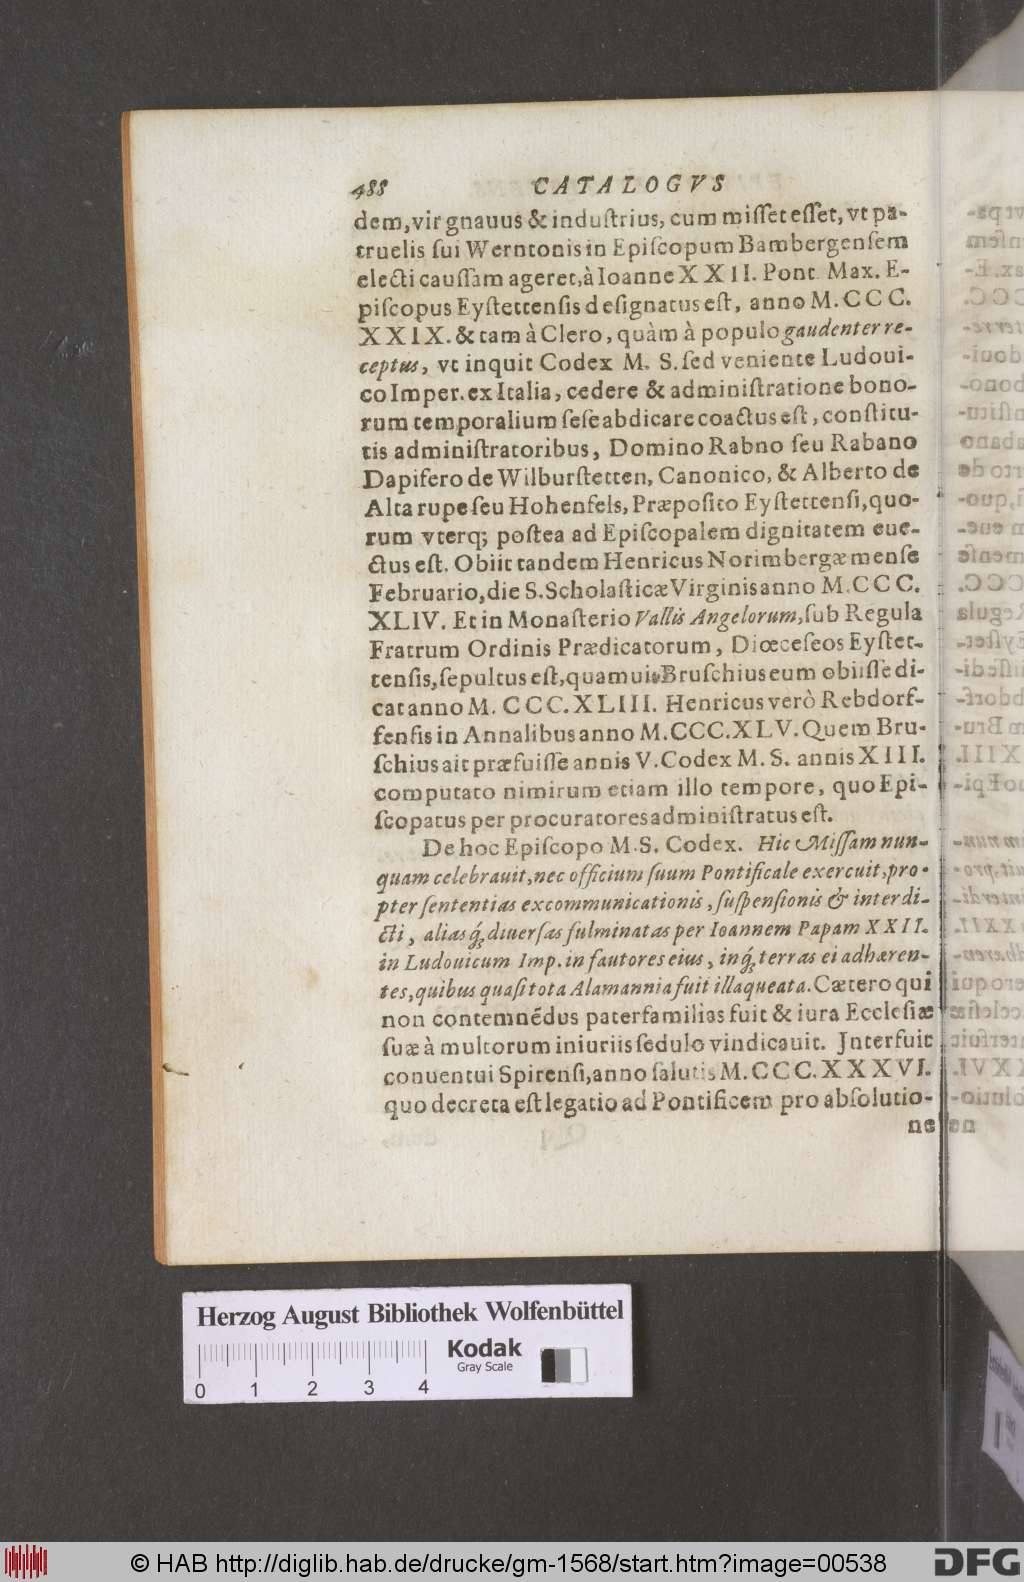 488 CATALOGVS
dem, vir gnauus & induſtrius, cum miſſet eſſet, vt pa-
truelis ſui Werntonis in Epiſcopum Bambergenſem
electi cauſſam ageret, à Ioanne XXII. Pont. Max. E-
piſcopus Eyſtettenſis deſignatus eſt, anno M. CCC.
XXIX. & tam à Clero, quàm à populo gaudenter re-
ceptus, vt inquit Codex M. S. ſed veniente Ludoui-
co Imper. ex Italia, cedere & adminiſtratione bono-
rum temporalium ſeſe abdicare coactus eſt, conſtitu-
tis adminiſtratoribus, Domino Rabno ſeu Rabano
Dapifero de Wilburſtetten, Canonico, & Alberto de
Alta rupe ſeu Hohenfels, Præpoſito Eyſtettenſi, quo-
rum vterq; poſtea ad Epiſcopalem dignitatem eue-
ctus eſt. Obiit tandem Henricus Norimbergæ menſe
Februario, die S. Scholaſticæ Virginis anno M. CCC.
XLIV. Et in Monaſterio Vallis Angelorum, ſub Regula
Fratrum Ordinis Prædicatorum, Diœceſeos Eyſtet-
tenſis, ſepultus eſt, quamuis Bruſchius eum obiiſſe di-
cat anno M. CCC. XLIII. Henricus verò Rebdorf-
fenſis in Annalibus anno M. CCC. XLV. Quem Bru-
ſchius ait præfuiſſe annis V. Codex M. S. annis XIII.
computato nimirum etiam illo tempore, quo Epi-
ſcopatus per procuratores adminiſtratus eſt.
De hoc Epiſcopo M. S. Codex. Hic Miſſam nun-
quam celebrauit, nec officium ſuum Pontificale exercuit, pro-
pter ſententias excommunicationis, ſuſpenſionis & interdi-
cti, aliasq́ diuerſas fulminatas per Ioannem Papam XXII.
in Ludouicum Imp. in fautores eius, inq́ terras ei adhæren-
tes, quibus quaſi tota Alamannia fuit illaqueata. Cætero qui
non contemnédus paterfamilias fuit & iura Eccleſiæ
ſuæ à multorum iniuriis ſedulo vindicauit. Interfuit
conuentui Spirenſi, anno ſalutis M. CCC. XXXVI.
quo decreta eſt legatio ad Pontificem pro abſolutio-
ne
Herzog August Bibliothek Wolfenbüttel
Kodak
Gray Scale
0 1 2 3 4
© HAB http://diglib.hab.de/drucke/gm-1568/start.htm?image=00538
DFG